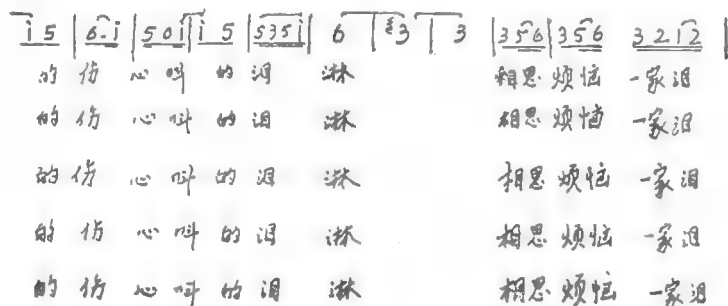 i 5 | 6·i | 5 0 i | i 5 | 5 3 5 i | 6 | 3 | 3 | 3 5 6 | 3 5 6 3 2 1 2 |
的伤 心呌的泪 淋 相思烦恼 一家泪
的伤 心呌的泪 淋 相思烦恼 一家泪
的伤 心呌的泪 淋 相思烦恼 一家泪
的伤 心呌的泪 淋 相思烦恼 一家泪
的伤 心呌的泪 淋 相思烦恼 一家泪